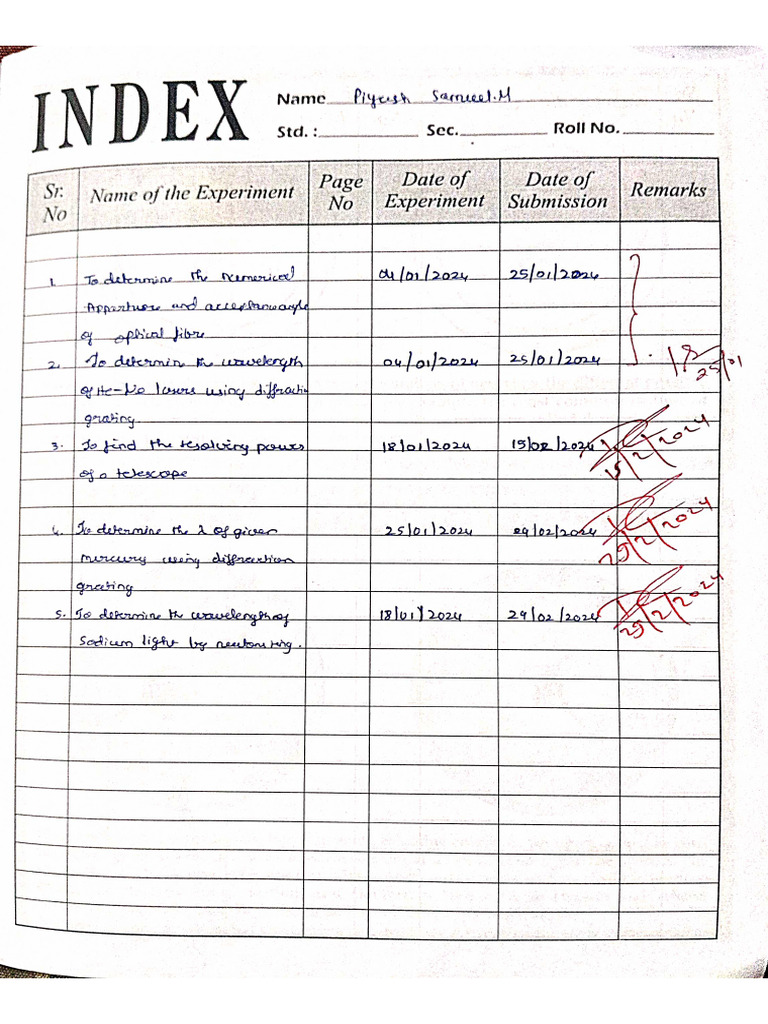 INDEX
Name Piyush Samuel.M
Std. : Sec. Roll No.
Sr. No Name of the Experiment Page No Date of Experiment Date of Submission Remarks
1. To determine the Numerical 04/01/2024 25/01/2024
Apperture and acceptance angle
of optical fibre
2. To determin the wavelength 04/01/2024 25/01/2024
of He-Ne lasers using diffractin 25/01
grating.
3. To find the resolving power 18/01/2024 15/02/2024
of a telescope 15/2/2024
4. To determine the λ of given 25/01/2024 29/02/2024
mercury using diffraction 29/2/2024
grating
5. To determine the wavelength of 18/01/2024 29/02/2024
Sodium light by newtons ring. 29/2/2024